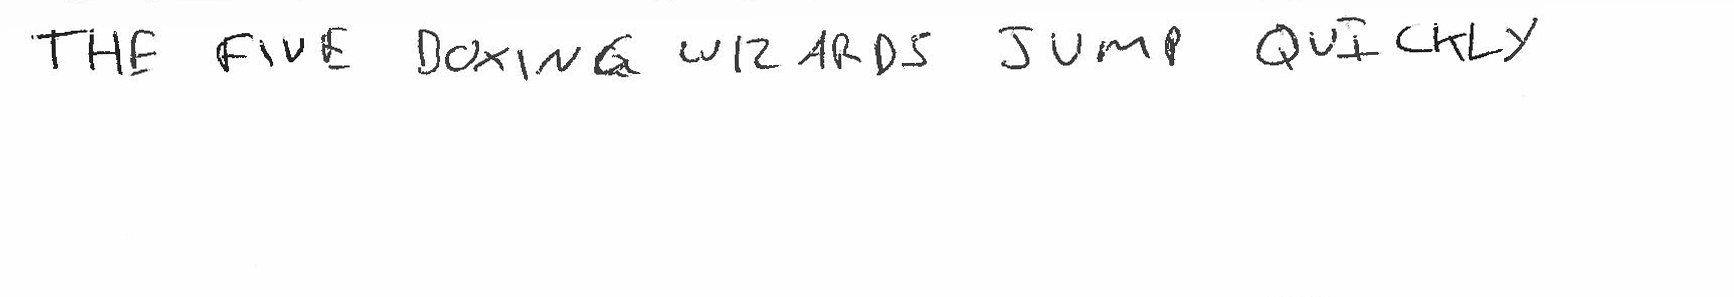 THE FIVE DOXING WIZARDS JUMP QUICKLY